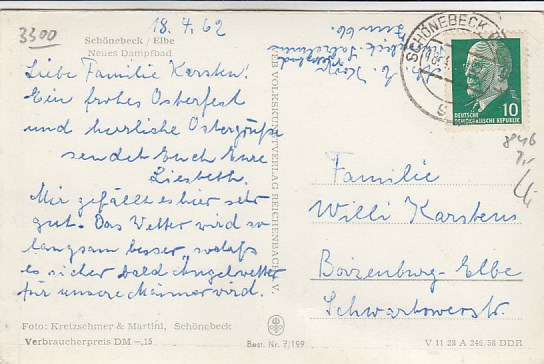 3300
18.4.62
Schönebeck / Elbe
Neues Dampfbad
Liebe Familie Karsten!
Ein frohes Osterfest
und herrliche Ostergrüße
sendet Euch Eure
Liesbeth.
Mir gefällt es hier sehr
gut. Das Wetter wird so
langsam besser, sodaß
es sicher bald Angelwetter
für unsere Männer wird.
Foto: Kretzschmer & Martini, Schönebeck
Verbraucherpreis DM -,15
VEB VOLKSKUNSTVERLAG REICHENBACH I. V.
Best. Nr. 7/199
SCHÖNEBECK
10
DEUTSCHE
DEMOKRATISCHE REPUBLIK
846
7,-
Familie
Willi Karstens
Boizenburg-Elbe
Schwartowerstr.
V 11 28 A 246/58 DDR